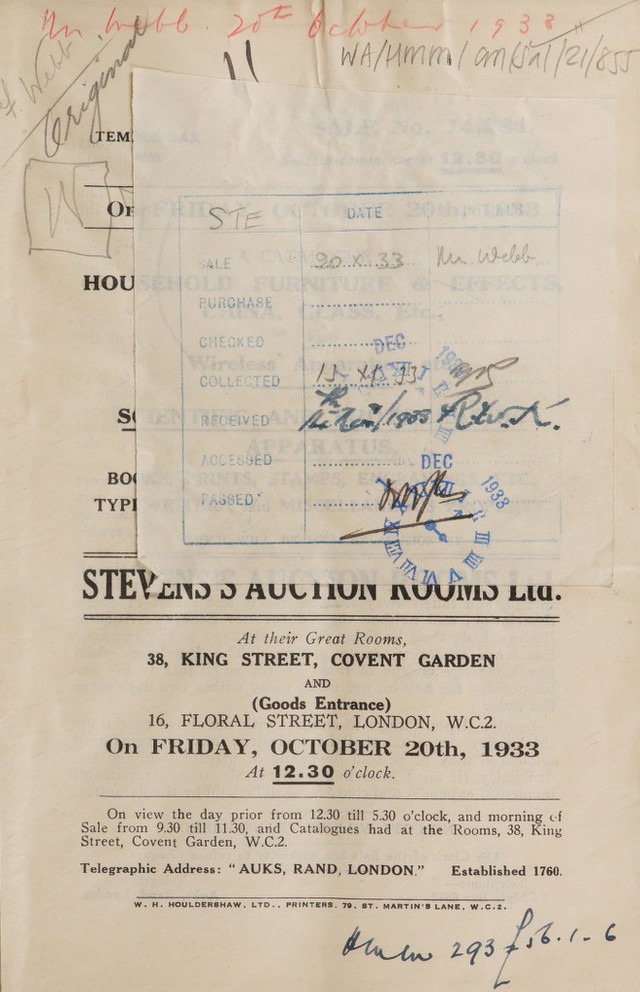 Mr. Webb. 20th October 1933
WA/HMM/CM/Sal/21/855
Webb
Original
W
TEM
SALE No.
12.30
OF
FRIDAY OCTOBER 20th 1933
STE
DATE
SALE 20.X.33 Mr. Webb.
HOU
SEHOLD FURNITURE & EFFECTS,
PURCHASE
CHINA, GLASS, Etc.,
CHECKED
DEC
1933
Wireless
COLLECTED
RECEIVED
APPARATUS
ACCESSED
DEC
1933
BO
TYP
PASSED
STEVENS'S AUCTION ROOMS Ltd.
At their Great Rooms,
38, KING STREET, COVENT GARDEN
AND
(Goods Entrance)
16, FLORAL STREET, LONDON, W.C.2.
On FRIDAY, OCTOBER 20th, 1933
At 12.30 o'clock.
On view the day prior from 12.30 till 5.30 o'clock, and morning of
Sale from 9.30 till 11.30, and Catalogues had at the Rooms, 38, King
Street, Covent Garden, W.C.2.
Telegraphic Address: "AUKS, RAND, LONDON." Established 1760.
W. H. HOULDERSHAW, LTD., PRINTERS, 79, ST. MARTIN'S LANE, W.C.2.
293 £56-1-6